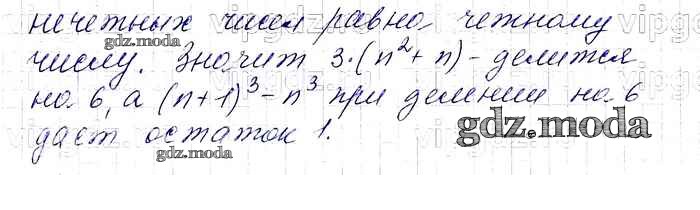 нечетных чисел равно четному
числу. Значит 3·(n²+n) - делится
на 6, а (n+1)³-n³ при делении на 6
дает остаток 1.
gdz.moda
gdz.moda
gdz.moda
gdz.moda